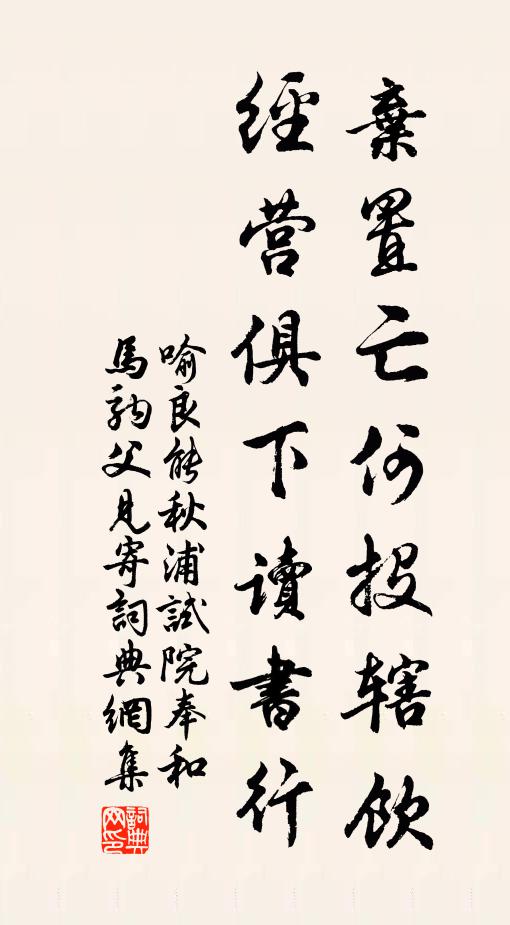 棄置亡何投辖飲
經营俱下讀書行
喻良能秋浦試院奉和
馬駒父見寄詞典網集
詞典
网印